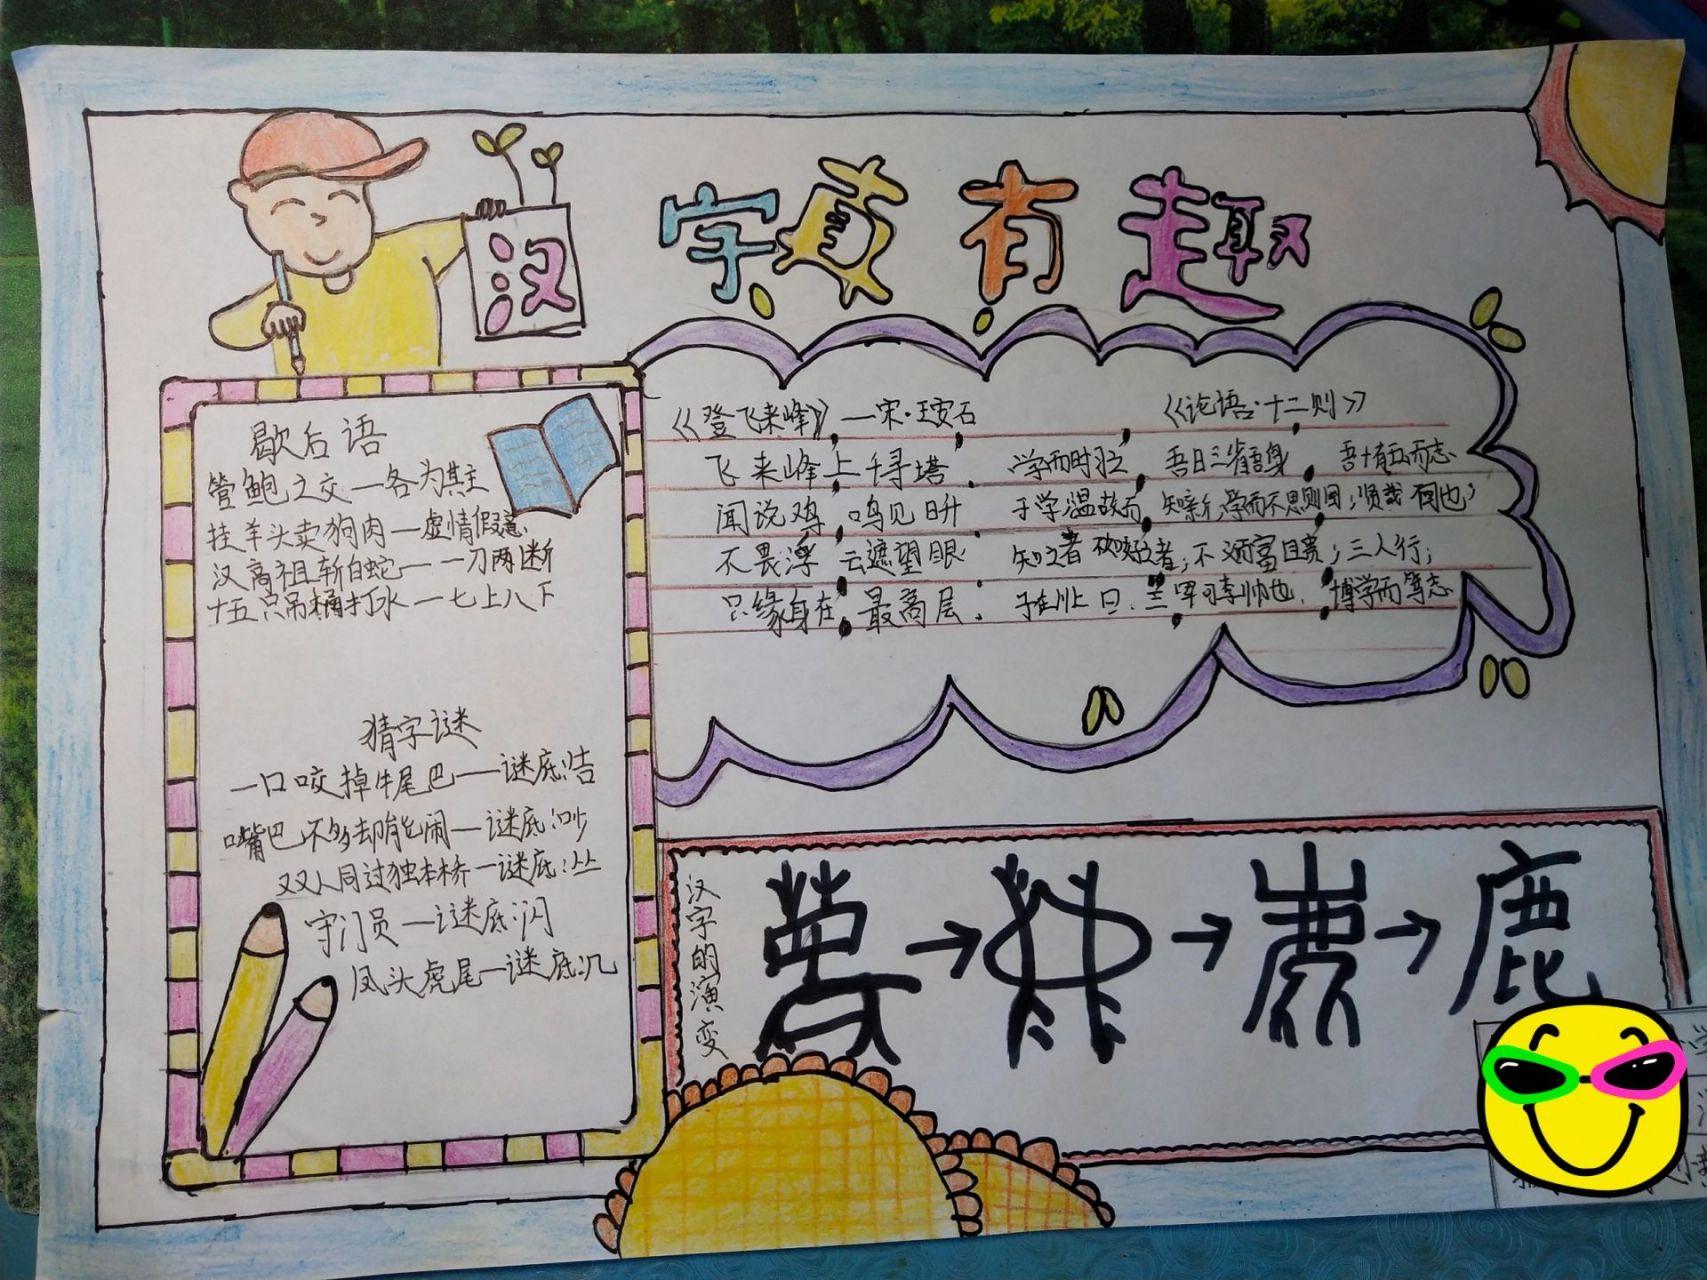 汉字真有趣
歇后语
管鲍之交—各为其主
挂羊头卖狗肉—虚情假意
汉高祖斩白蛇—一刀两断
十五只吊桶打水—七上八下
猜字谜
一口咬掉牛尾巴—谜底:告
嘴巴不多却能闹—谜底:吵
双人同过独木桥—谜底:丛
守门员—谜底:闪
凤头虎尾—谜底:几
《登飞来峰》—宋·王安石
飞来峰上千寻塔,
闻说鸡鸣见日升
不畏浮云遮望眼
只缘身在最高层.
《论语·十二则》
学而时习之 吾日三省吾身 吾十有五而志
于学,温故而知新,学而不思则罔;贤哉回也;
三人行;
子在川上曰. 博学而笃志
汉字的演变
→ → → 鹿